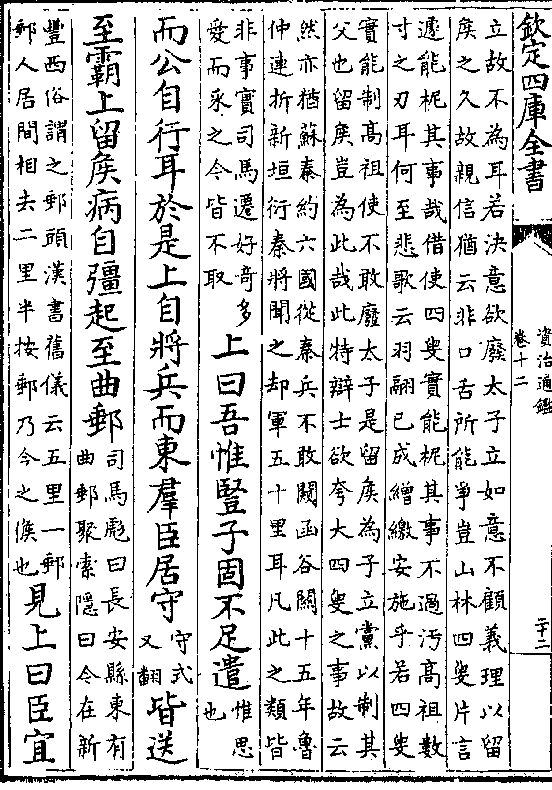 欽定四庫全書
資治通鑑
卷十二
二十二
立故不為耳若決意欲廢太子立如意不顧義理以留
矦之久故親信猶云非口舌所能爭豈山林四叟片言
遽能柅其事哉借使四叟實能柅其事不過汚高祖數
寸之刃耳何至悲歌云羽翮已成繒繳安施乎若四叟
實能制高祖使不敢廢太子是留矦為子立黨以制其
父也留矦豈為此哉此特辯士欲夸大四叟之事故云
然亦猶蘇秦約六國從秦兵不敢闚函谷關十五年魯
仲連折新垣衍秦將聞之却軍五十里耳凡此之類皆
非事實司馬遷好奇多
愛而采之今皆不取
上曰吾惟豎子固不足遣
惟思
也
而公自行耳於是上自將兵而東羣臣居守
守式
又翻
皆送
至霸上留矦病自彊起至曲郵
司馬彪曰長安縣東有
曲郵聚索隱曰今在新
豐西俗謂之郵頭漢書舊儀云五里一郵
郵人居間相去二里半按郵乃今之候也
見上曰臣宜